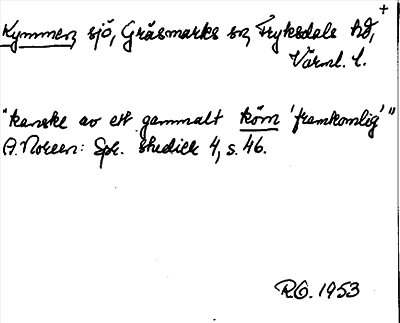 Kymmen, sjö, Gräsmarks sn, Fryksdals hd, +
Värml. l.
"kanske av ett gammalt körn 'framkomlig'"
A. Noreen: Spr. studier 4, s. 46.
R.O. 1953